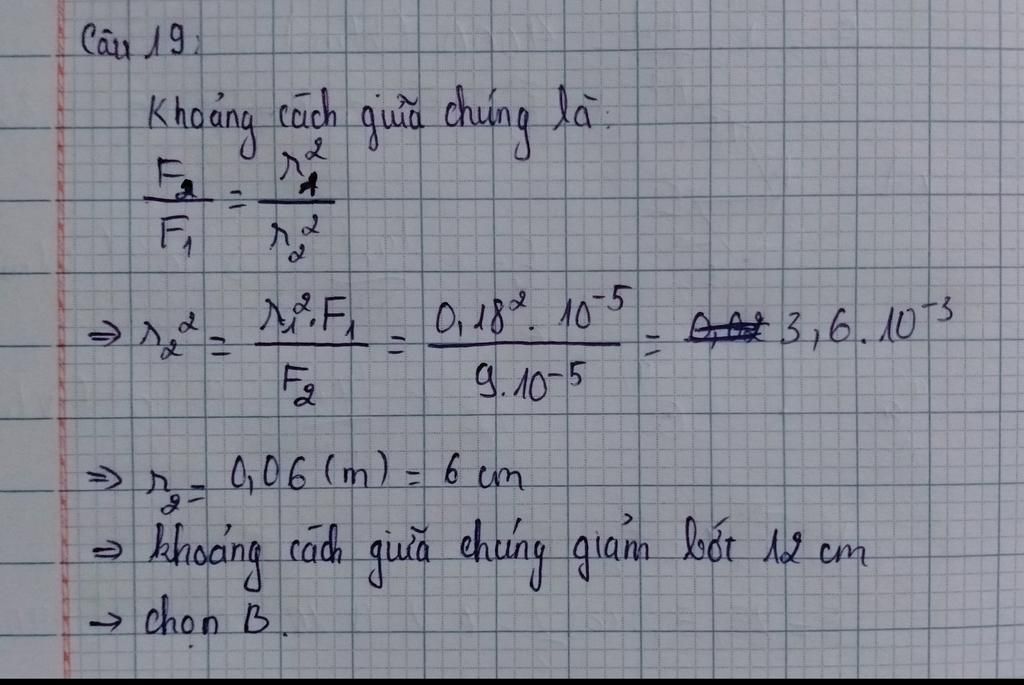 Câu 19:
Khoảng cách giữa chúng là:
F₂/F₁ = r₁²/r₂²
⇒ r₂² = r₁².F₁/F₂ = 0,18². 10⁻⁵/9.10⁻⁵ = 3,6.10⁻³
⇒ r₂ = 0,06 (m) = 6 cm
⇒ khoảng cách giữa chúng giảm bớt 12 cm
→ chọn B.